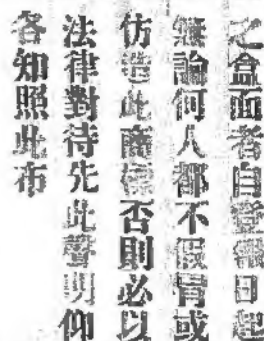 之盒面者自登報日起
無論何人都不假冒或
仿造此商標否則必以
法律對待先此聲明仰
各知照此布